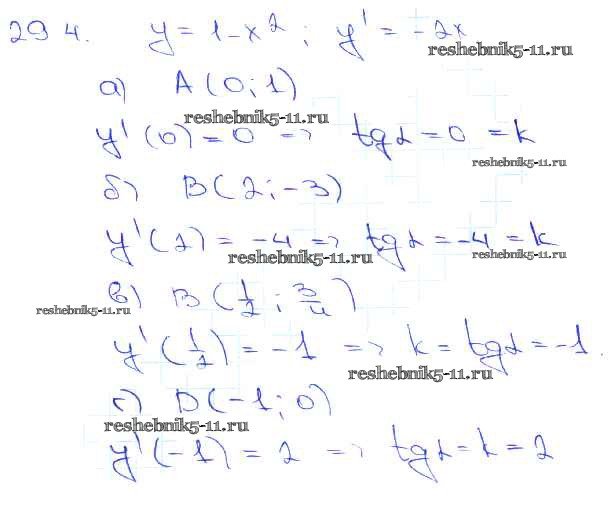 29 4. y = 1 - x²; y' = -2x
reshebnik5-11.ru
а) A (0; 1)
reshebnik5-11.ru
y'(0) = 0 => tgα = 0 = k
reshebnik5-11.ru
б) B (2; -3)
y'(2) = -4 => tgα = -4 = k
reshebnik5-11.ru reshebnik5-11.ru
в) B (1/2; 3/4)
reshebnik5-11.ru
y'(1/2) = -1 => k = tgα = -1.
reshebnik5-11.ru
г) D (-1; 0)
reshebnik5-11.ru
y'(-1) = 2 => tgα = k = 2